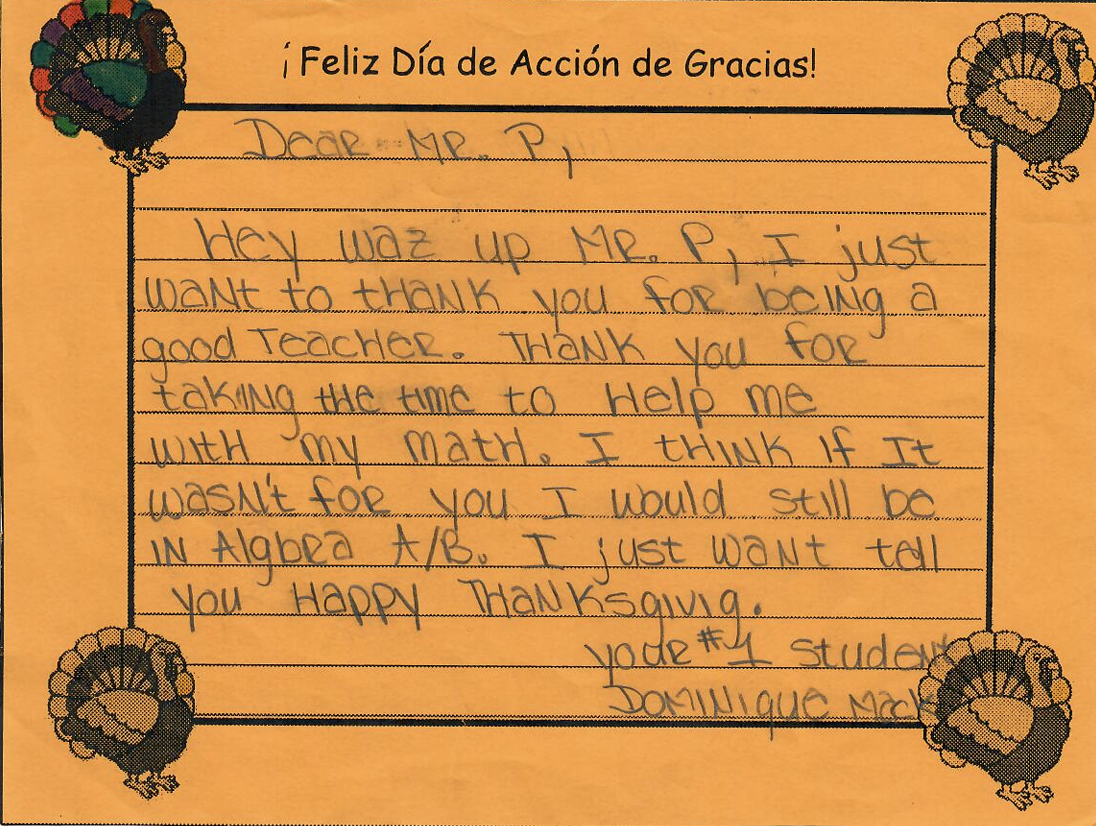 ¡Feliz Día de Acción de Gracias!
Dear Mr. P,
Hey waz up Mr. P, I just
want to thank you for being a
good Teacher. Thank you for
taking the time to Help me
with my math. I think if It
wasn't for you I would still be
in Algbra A/B. I just want tell
you Happy Thanksgivig.
your #1 student
Dominique Mack